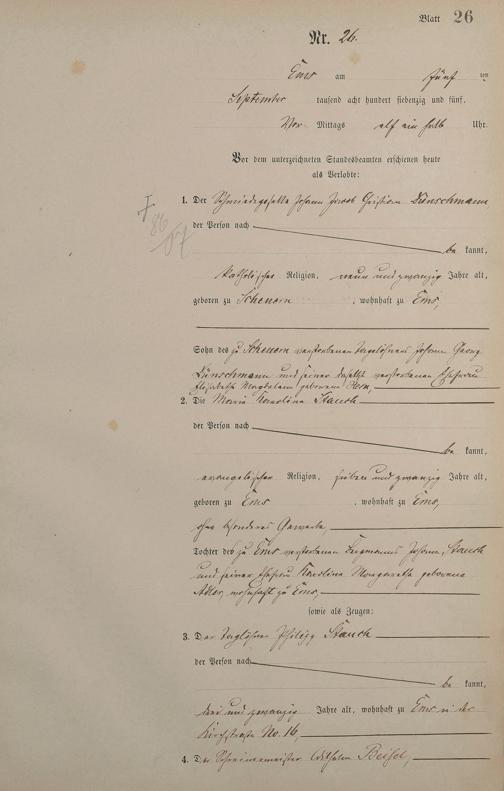 Blatt 26
Nr. 26.
Ems am fünf ten
September tausend acht hundert siebenzig und fünf,
Vor Mittags elf ein halb Uhr.
Vor dem unterzeichneten Standesbeamten erschienen heute
als Verlobte:
1. Der Schmiedegeselle Johann Jacob Christian Dünschmann
der Person nach
be kannt,
katholischer Religion, neun und zwanzig Jahre alt,
geboren zu Scheuern, wohnhaft zu Ems,
Sohn des zu Scheuern verstorbenen Taglöhners Johann Georg
Dünschmann und seiner daselbst verstorbenen Ehefrau
Elisabetha Magdalena geborenen
2. Die Maria Karolina Stauch
der Person nach
be kannt,
evangelischer Religion, sieben und zwanzig Jahre alt,
geboren zu Ems, wohnhaft zu Ems,
ohne besonderes Gewerbe,
Tochter des zu Ems verstorbenen Bergmanns Johann Stauch
und seiner Ehefrau Karolina Margaretha geborene
Adler, wohnhaft zu Ems,
sowie als Zeugen:
3. Der Taglöhner Philipp Stauch
der Person nach
be kannt,
drei und zwanzig Jahre alt, wohnhaft zu Ems in der
Kirchstraße No. 16,
4. Der Schreinermeister Wilhelm Beisel,